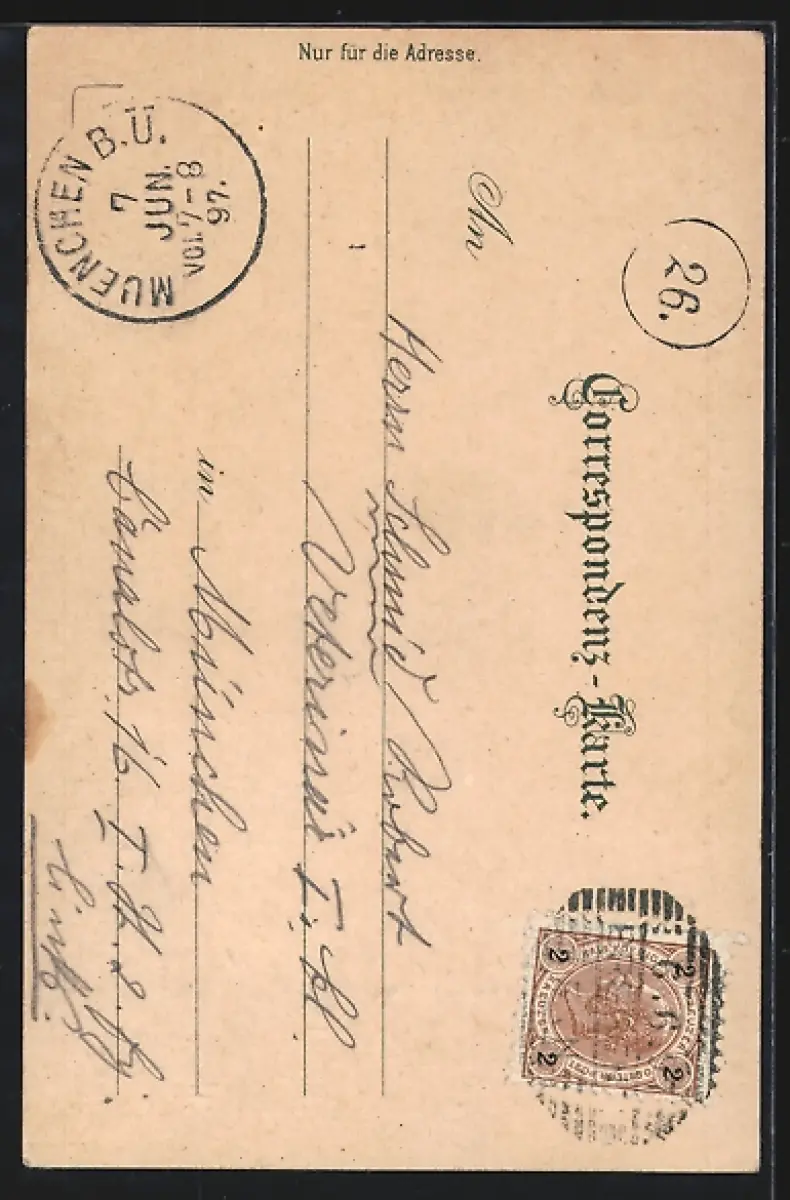 Nur für die Adresse.
Correspondenz-Karte.
26.
An
Herrn Schmid Robert
Veterinär I. Kl.
in München
16 I. St. b. Hj.
links.
MUENCHEN B.Ü.
7
JUN.
VOR.7-8
97.
2
2
2
2